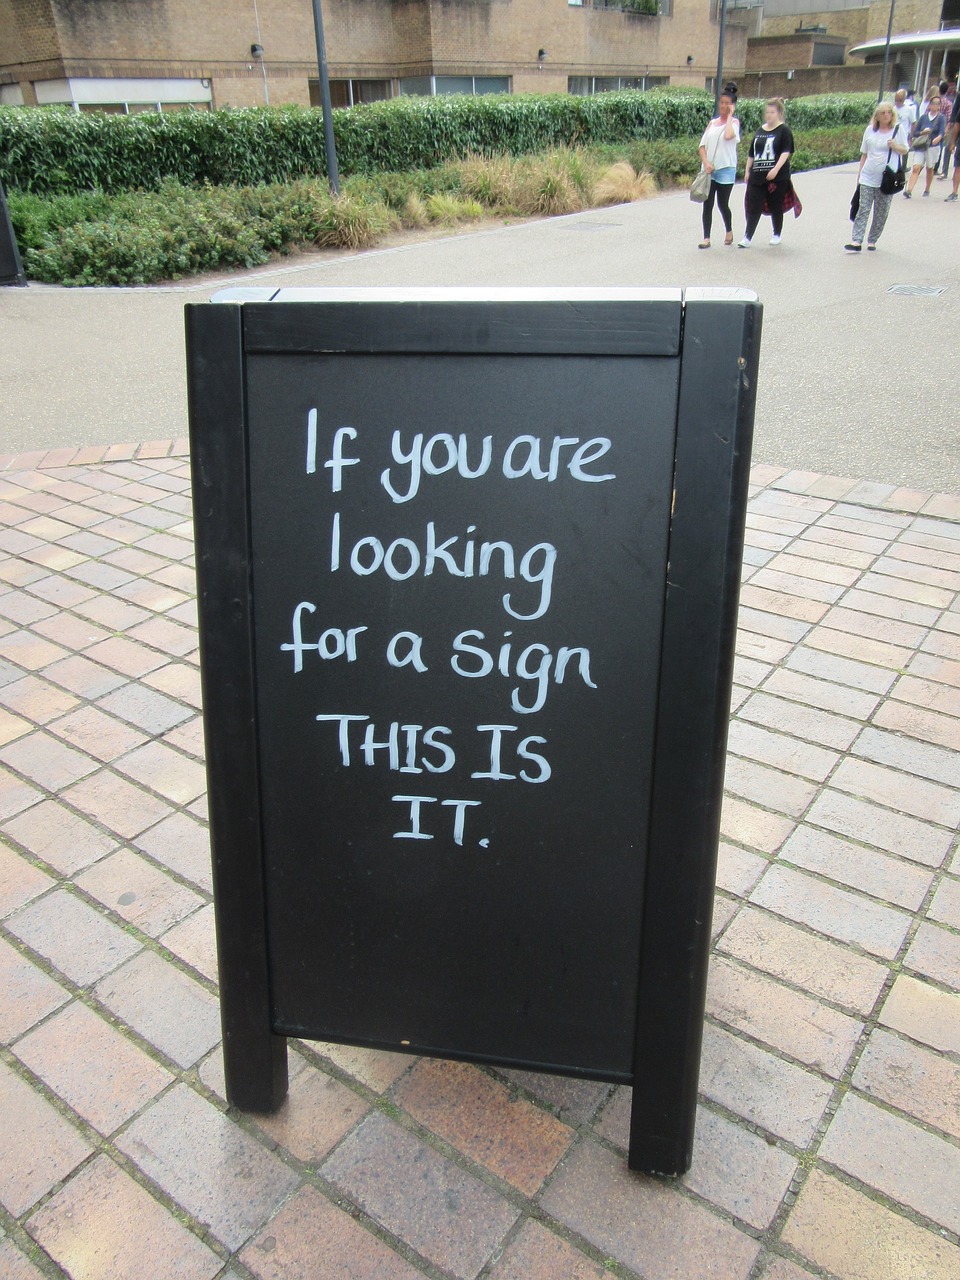 If you are
looking
for a sign
THIS IS
IT.
LA